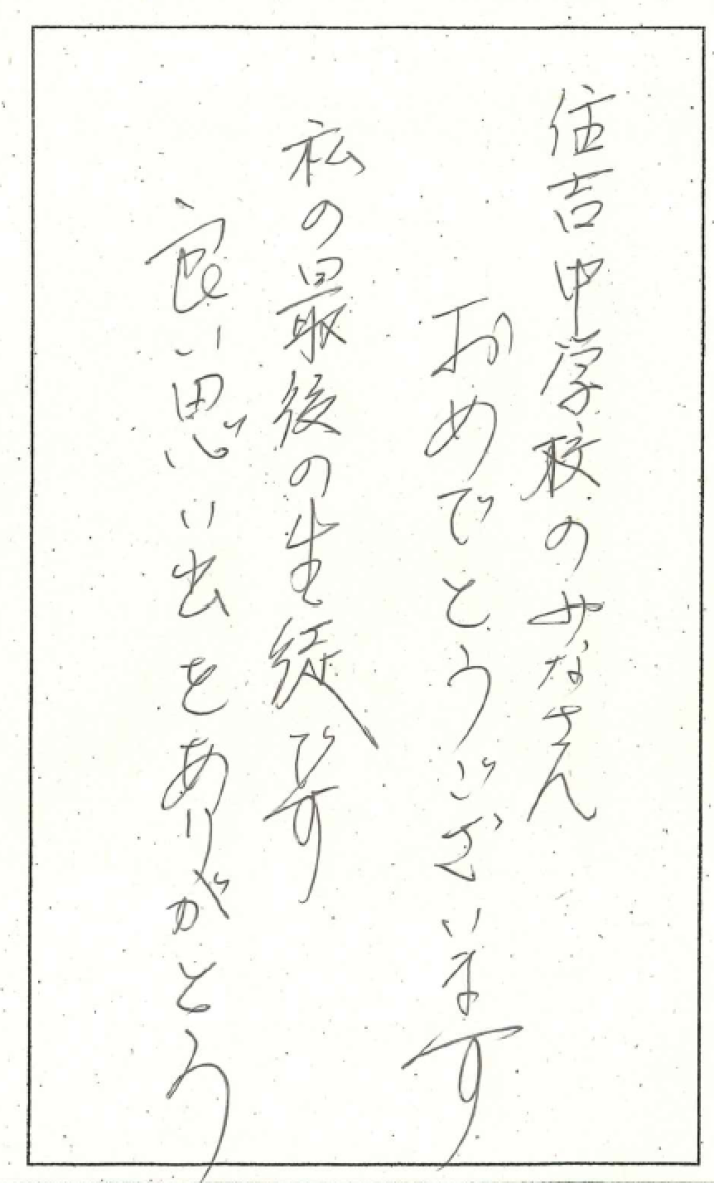 住吉中学校のみなさん
おめでとうございます
私の最後の生徒です
良い思い出をありがとう